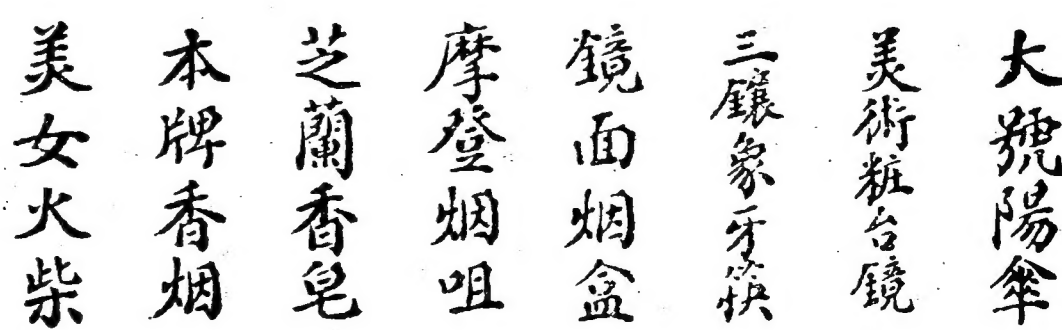 大號陽傘
美術粧台鏡
三鑲象牙筷
鏡面烟盒
摩登烟咀
芝蘭香皂
本牌香烟
美女火柴